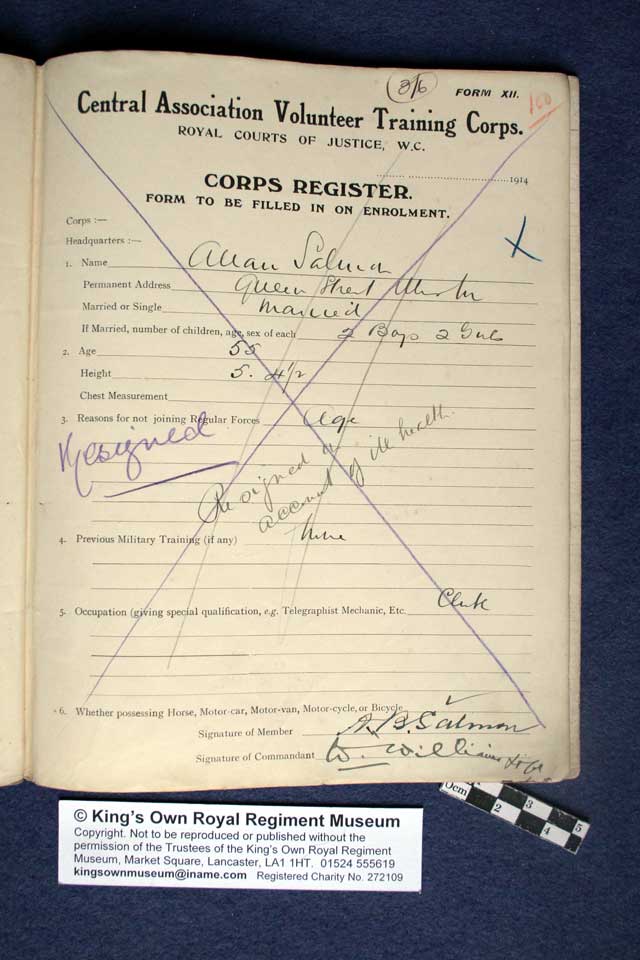 3/6
FORM XII.
160
Central Association Volunteer Training Corps.
ROYAL COURTS OF JUSTICE, W.C.
1914
CORPS REGISTER.
FORM TO BE FILLED IN ON ENROLMENT.
Corps :—
Headquarters :—
1. Name Allan Salmon
Permanent Address Queen Street
Married or Single Married
If Married, number of children, age, sex of each 2 Boys 2 Girls
2. Age 55
Height 5. 4½
Chest Measurement
3. Reasons for not joining Regular Forces Age
Resigned
Resigned on
account of ill health.
4. Previous Military Training (if any) None
5. Occupation (giving special qualification, e.g. Telegraphist Mechanic, Etc. Clerk
6. Whether possessing Horse, Motor-car, Motor-van, Motor-cycle, or Bicycle
Signature of Member A. B. Salmon
Signature of Commandant W. Williams
0cm 2 3 4 5
© King's Own Royal Regiment Museum
Copyright. Not to be reproduced or published without the
permission of the Trustees of the King's Own Royal Regiment
Museum, Market Square, Lancaster, LA1 1HT. 01524 555619
kingsownmuseum@iname.com Registered Charity No. 272109